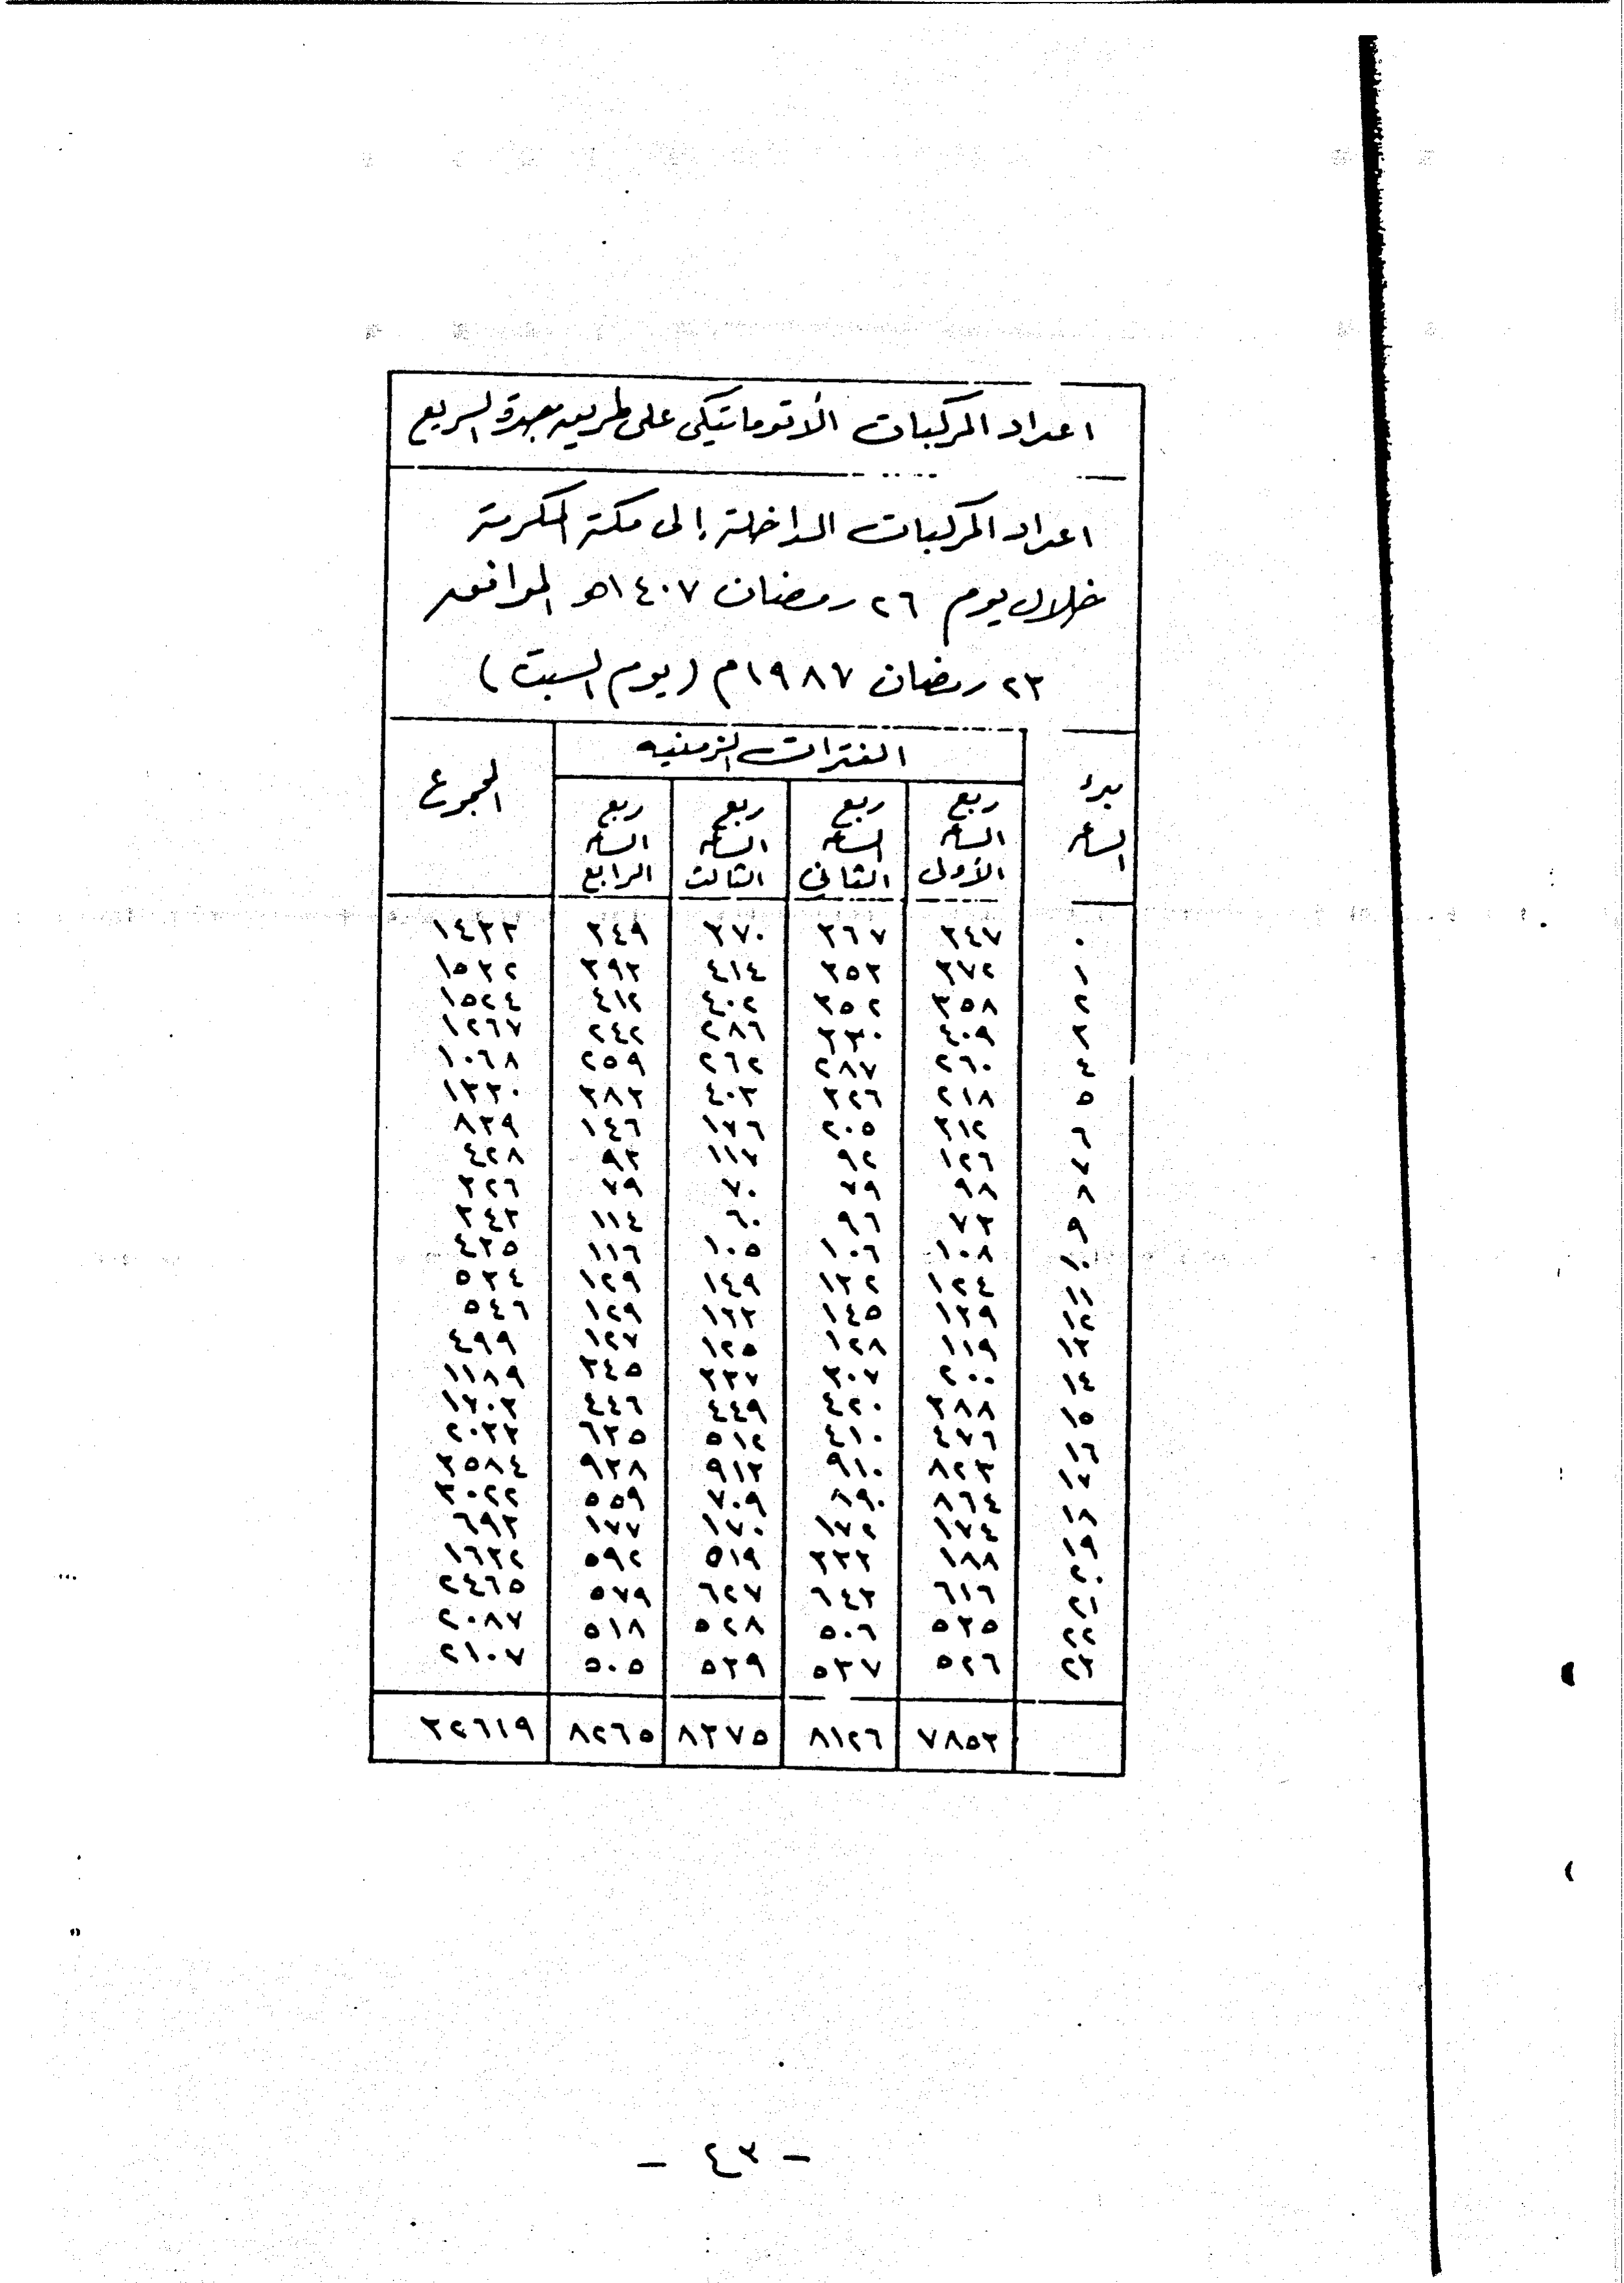 اعداد المركبات الأتوماتيكى على طريق جدة السريع
اعداد المركبات الداخلة إلى مكة المكرمة
خلال يوم ٢٦ رمضان ١٤٠٧هـ الموافق
٢٣ رمضان ١٩٨٧م (يوم السبت)
بدء الساعه الفترات الزمنيه المجموع
ربع الساعه الأولى ربع الساعه الثانى ربع الساعه الثالث ربع الساعه الرابع
٠ ٣٤٧ ٣٦٧ ٣٧٠ ٣٤٩ ١٤٣٣
١ ٣٧٢ ٣٥٣ ٤١٤ ٣٩٣ ١٥٣٢
٢ ٣٥٨ ٣٥٢ ٤٠٢ ٤١٢ ١٥٢٤
٣ ٤٠٩ ٣٣٠ ٢٨٦ ٢٤٢ ١٢٦٧
٤ ٢٦٠ ٢٨٧ ٢٦٢ ٢٥٩ ١٠٦٨
٥ ٢١٨ ٣٢٦ ٤٠٣ ٣٨٣ ١٣٣٠
٦ ٣١٢ ٢٠٥ ١٧٦ ١٤٦ ٨٣٩
٧ ١٢٦ ٩٢ ١١٧ ٩٣ ٤٢٨
٨ ٩٨ ٧٩ ٧٠ ٧٩ ٣٢٦
٩ ٧٣ ٩٦ ٦٠ ١١٤ ٣٤٣
١٠ ١٠٨ ١٠٦ ١٠٥ ١١٦ ٤٣٥
١١ ١٢٤ ١٣٢ ١٤٩ ١٢٩ ٥٣٤
١٢ ١�٩ ١٤٥ ١٣٣ ١٢٩ ٥٤٦
١٣ ١١٩ ١٢٨ ١٢٥ ١٢٧ ٤٩٩
١٤ ٢٠٠ ٣٠٧ ٣٣٧ ٣٤٥ ١١٨٩
١٥ ٣٨٨ ٤٢٠ ٤٤٩ ٤٤٦ ١٧٠٣
١٦ ٤٧٦ ٤١٠ ٥١٢ ٦٣٥ ٢٠٣٣
١٧ ٨٢٣ ٩١٠ ٩١٣ ٩٣٨ ٣٥٨٤
١٨ ٨٦٤ ٨٩٠ ٧٠٩ ٥٥٩ ٣٠٢٢
١٩ ١٧٤ ١٧٢ ١٧٠ ١٧٧ ٦٩٣
٢٠ ١٨٨ ٣٣٣ ٥١٩ ٥٩٢ ١٦٣٢
٢١ ٦١٦ ٦٤٣ ٦٢٧ ٥٧٩ ٢٤٦٥
٢٢ ٥٣٥ ٥٠٦ ٥٢٨ ٥١٨ ٢٠٨٧
٢٣ ٥٢٦ ٥٣٧ ٥٣٩ ٥٠٥ ٢١٠٧
٧٨٥٣ ٨١٢٦ ٨٣٧٥ ٨٢٦٥ ٣٢٦١٩
- ٤٣ -